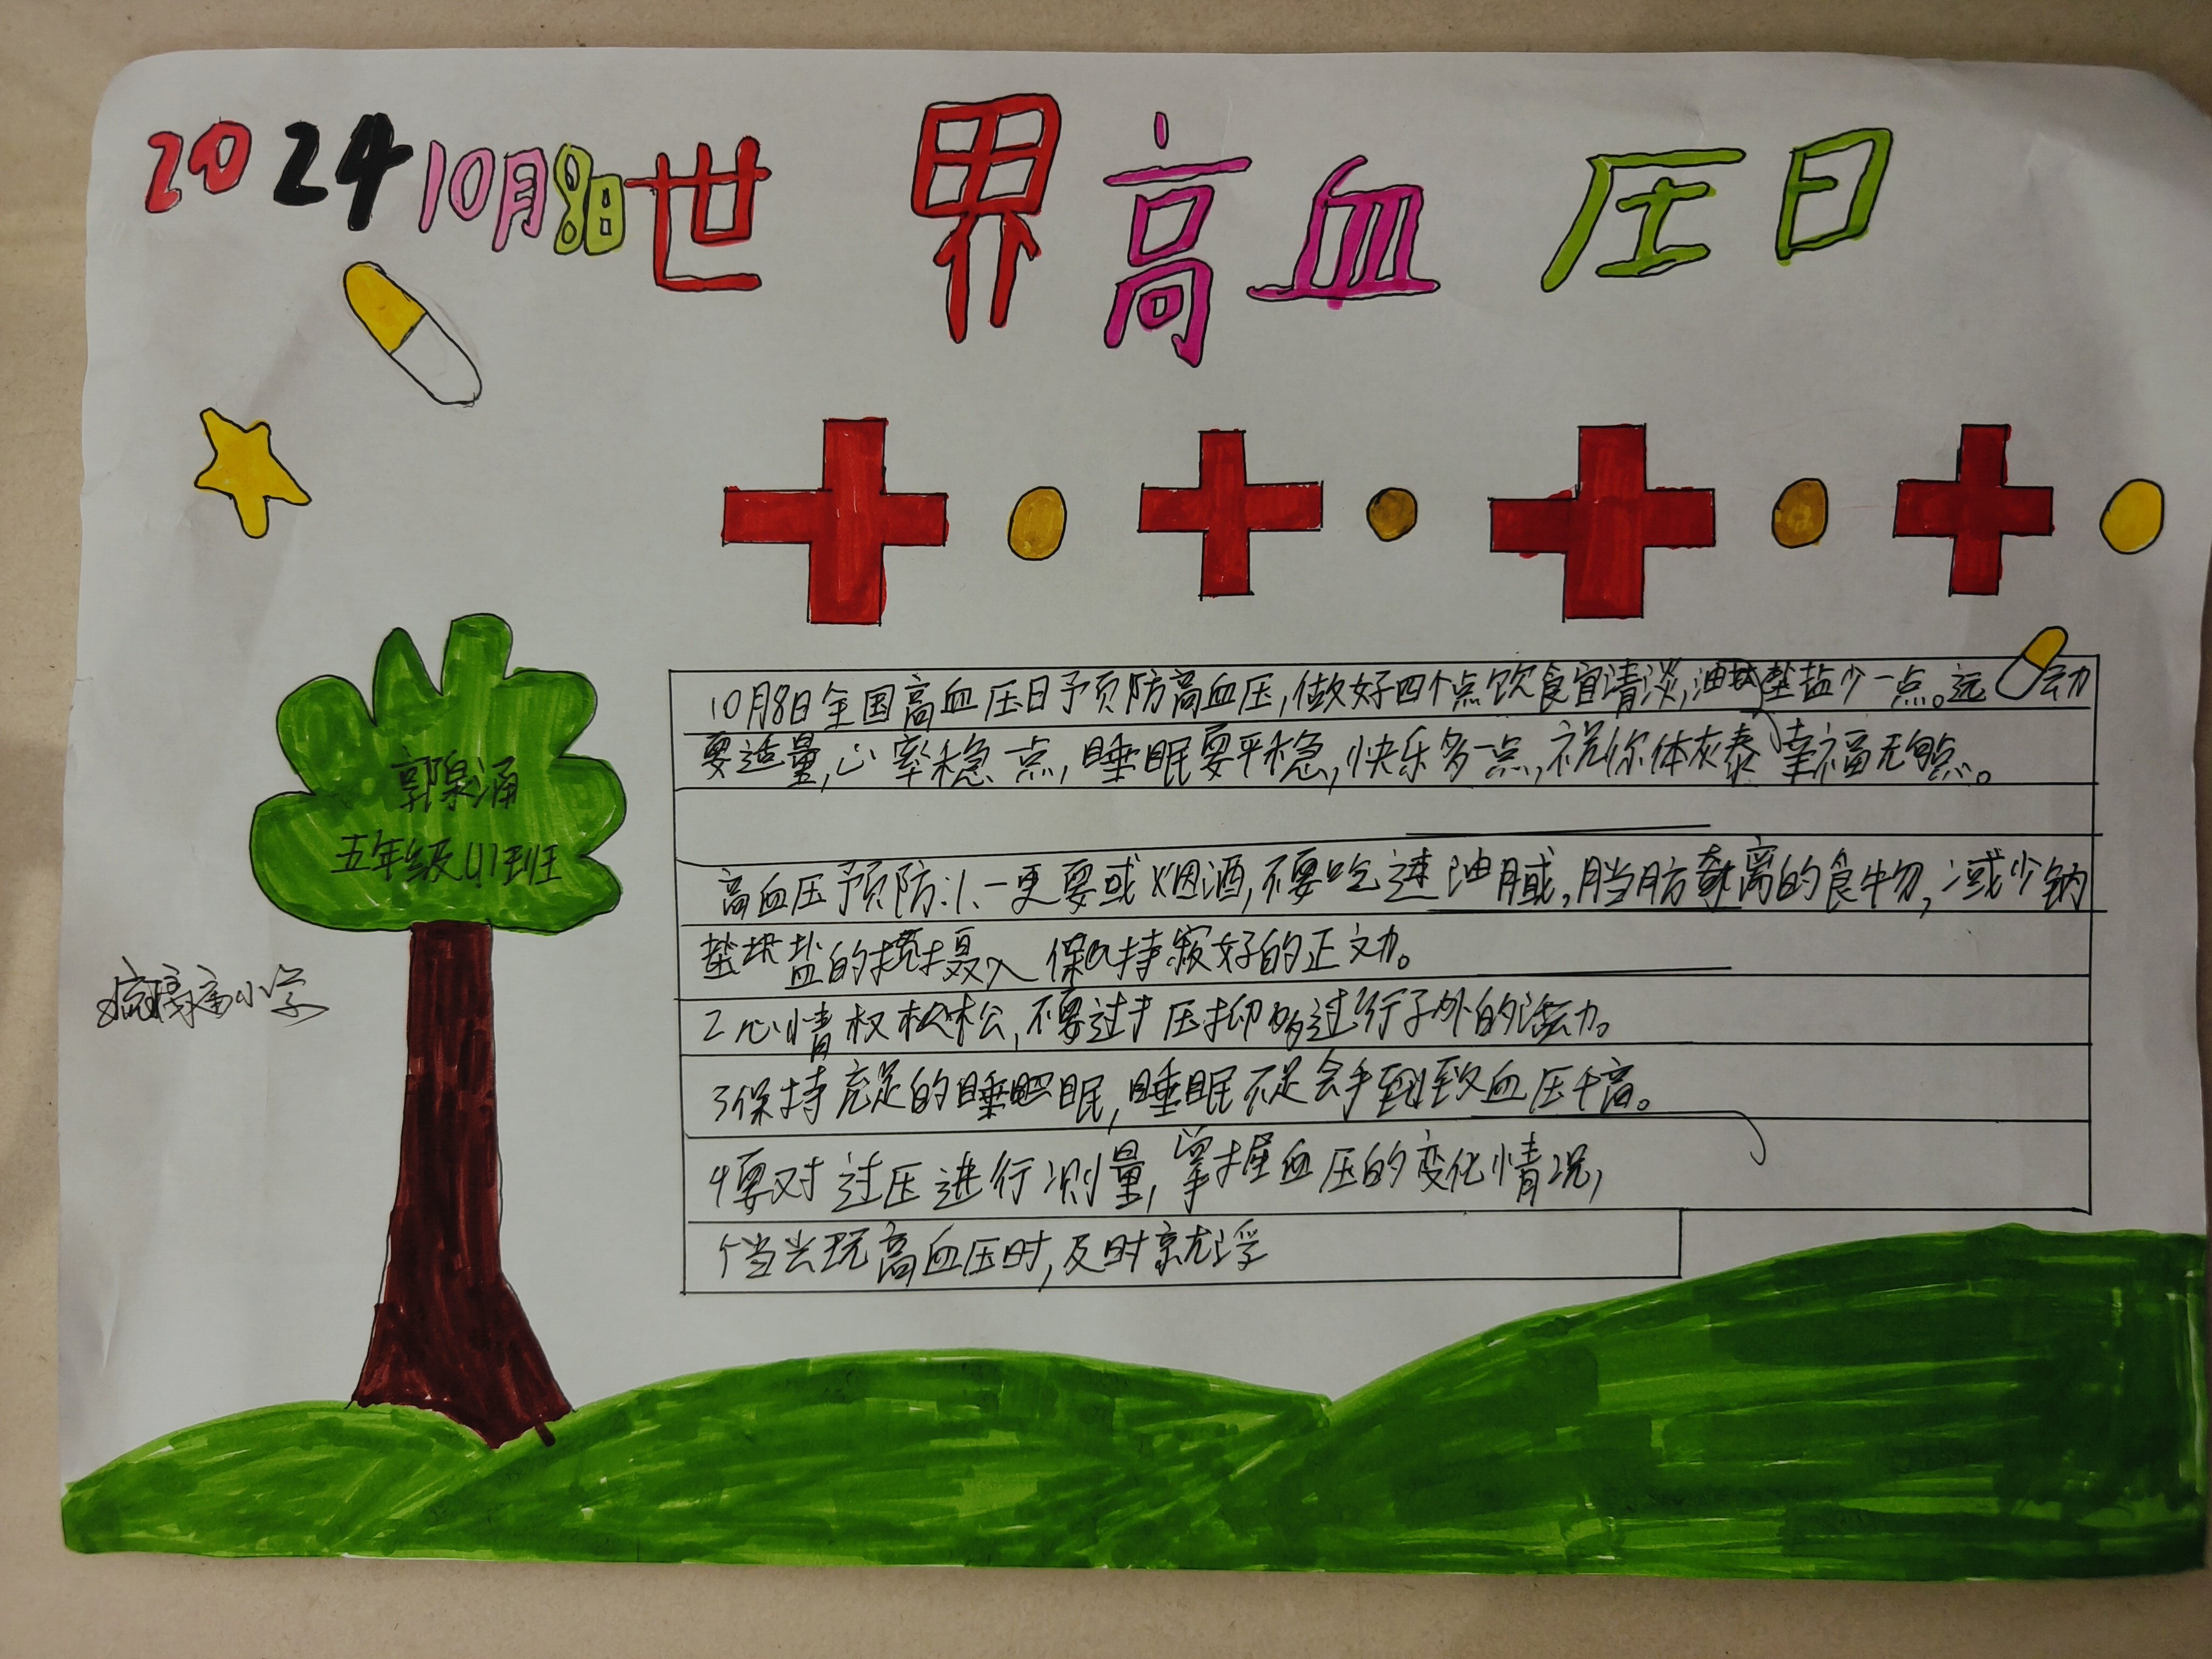 2024 10月8日世界高血压日
郭泉涌
五年级(1)班
小学
10月8日全国高血压日予页防高血压,做好四个点饮食宜清淡,油盐少一点。运动
要适量,心率稳一点,睡眠要平稳,快乐多一点,祝你体灰泰幸福无点。
高血压预防:1、一更要或烟酒,不要吃过油腻,脂肪高的食物,减少钠
盐的摄入 保持良好的正文力。
2心情松,不要过于压抑多进行子外的活力。
3保持充足的睡眠,睡眠不足会导致血压千高。
4要对过压进行测量,掌握血压的变化情况,
当出现高血压时,及时就浮